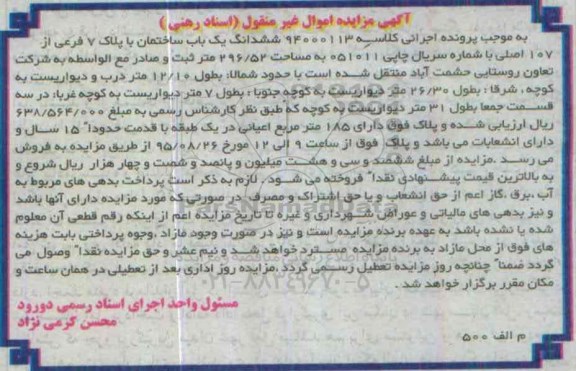 آگهی مزایده اموال غیر منقول (اسناد رهنی)
به موجب پرونده اجرائی کلاسه ۹۴۰۰۰۱۱۳ ششدانگ یک باب ساختمان با پلاک ۷ فرعی از
۱۰۷ اصلی با شماره سریال چاپی ۰۵۱۰۱۱ به مساحت ۲۹۶/۵۲ متر ثبت و صادر مع الواسطه به شرکت
تعاون روستایی حشمت آباد منتقل شده است با حدود شمالا: بطول ۱۲/۱۰ متر درب و دیواریست به
کوچه ، شرقا : بطول ۲۶/۳۰ متر دیواریست به کوچه جنوبا : بطول ۷ متر دیواریست به کوچه غربا: در سه
قسمت جمعا بطول ۳۱ متر دیواریست به کوچه که طبق نظر کارشناس رسمی به مبلغ ۶۳۸/۵۶۴/۰۰۰
ریال ارزیابی شده و پلاک فوق دارای ۱۸۵ متر مربع اعیانی در یک طبقه با قدمت حدوداً ۱۵ سال و
دارای انشعابات می باشد و پلاک فوق از ساعت ۹ الی ۱۲ مورخ ۹۵/۰۸/۲۶ از طریق مزایده به فروش
می رسد .مزایده از مبلغ ششصد و سی و هشت میلیون و پانصد و شصت و چهار هزار ریال شروع و
به بالاترین قیمت پیشنهادی نقداً فروخته می شود . لازم به ذکر است پرداخت بدهی های مربوط به
آب ،برق ،گاز اعم از حق انشعاب و یا حق اشتراک و مصرف در صورتی که مورد مزایده دارای آنها باشد
و نیز بدهی های مالیاتی و عوارض شهرداری و غیره تا تاریخ مزایده اعم از اینکه رقم قطعی آن معلوم
شده یا نشده باشد به عهده برنده مزایده است و نیز در صورت وجود مازاد ،وجوه پرداختی بابت هزینه
های فوق از محل مازاد به برنده مزایده مسترد خواهد شد و نیم عشر و حق مزایده نقداً وصول می
گردد ضمناً چنانچه روز مزایده تعطیل رسمی گردد ،مزایده روز اداری بعد از تعطیلی در همان ساعت و
مکان مقرر برگزار خواهد شد .
مسئول واحد اجرای اسناد رسمی دورود
محسن کرمی نژاد
م الف ۵۰۰